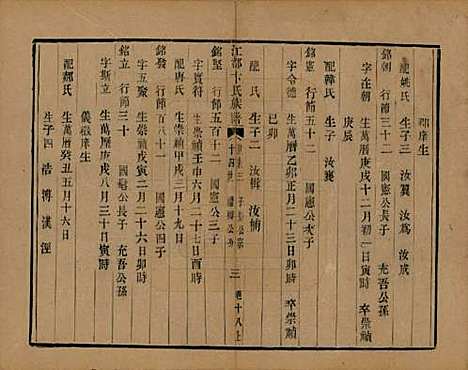 鄉庠生
配姚氏 生子三 汝翼 汝為 汝成
銘朝 行節三十二 國
字注朝 生萬歷庚戌十二月初一日寅時 卒崇禎
庚辰
配韓氏 生子 汝龔
銘憲 行節五十二 國憲公次子
字令德 生萬歷乙卯正月二十三日卯時 卒崇禎
己卯
配 氏 生子二 汝楫 汝楠
江都卞氏族譜 十四世 三 卷十八上
銘堅 行節五百十二 國憲公三子
字實符 生崇禎壬申六月二十七日酉時
配唐氏 生崇禎甲戌三月十九日
銘發 行節百八十一 國憲公四子
字五聚 生崇禎戊寅二月二十六日卯時
銘立 行節三十 國 公長子 充吾公孫
字斯立 生萬歷庚戌八月三十日寅時
儀徵庠生
配鄭氏 生萬歷癸丑五月十六日
生子四 浩 溥 漢 涇